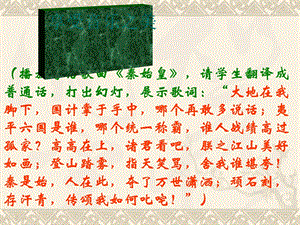 曲《秦始皇》,请学生翻译成
普通话,打出幻灯,展示歌词:“大地在我
脚下,国计掌于手中,哪个再敢多说话;夷
平六国是谁,哪个统一称霸,谁人战绩高过
孤家?高高在上,请君看吧,朕之江山美好
如画;登山踏雾,指天笑骂,舍我谁堪夸!
秦是始,人在此,夺了万世潇洒;顽石刻,
存汗青,传颂我如何叱咤!”)